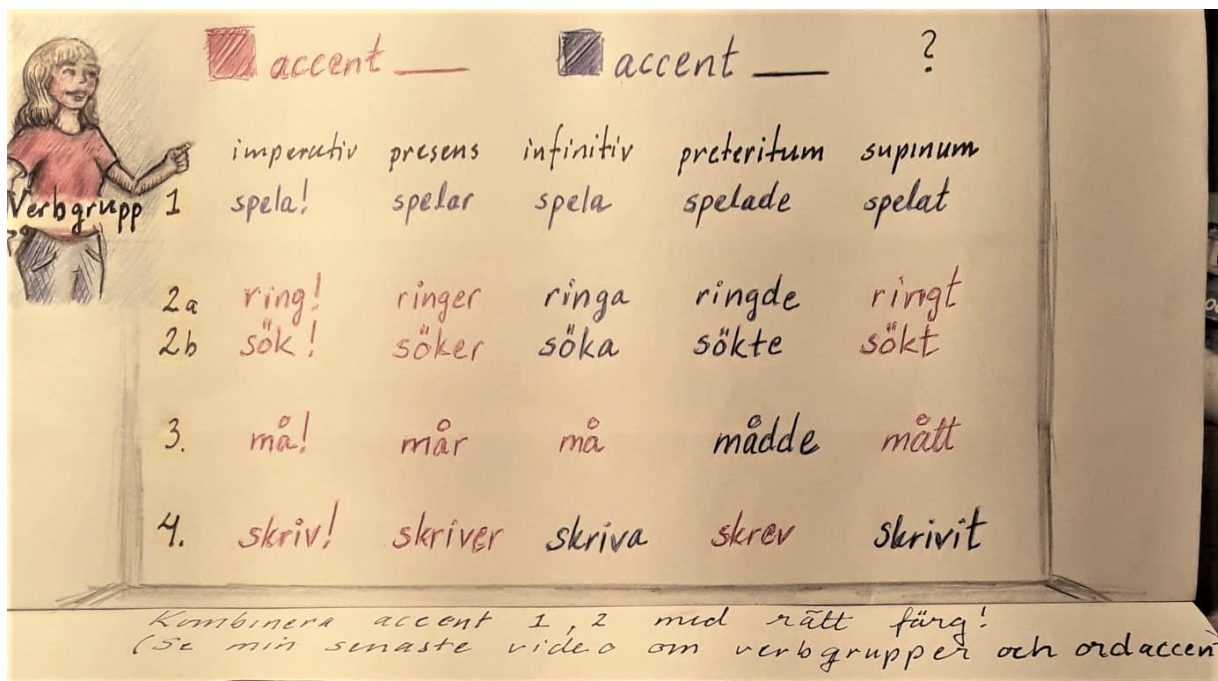 accent ___ accent ___ ?
imperativ presens infinitiv preteritum supinum
Verbgrupp 1 spela! spelar spela spelade spelat
2a ring! ringer ringa ringde ringt
2b sök! söker söka sökte sökt
3. må! mår må mådde mått
4. skriv! skriver skriva skrev skrivit
Kombinera accent 1, 2 med rätt färg!
(Se min senaste video om verbgrupper och ordaccen